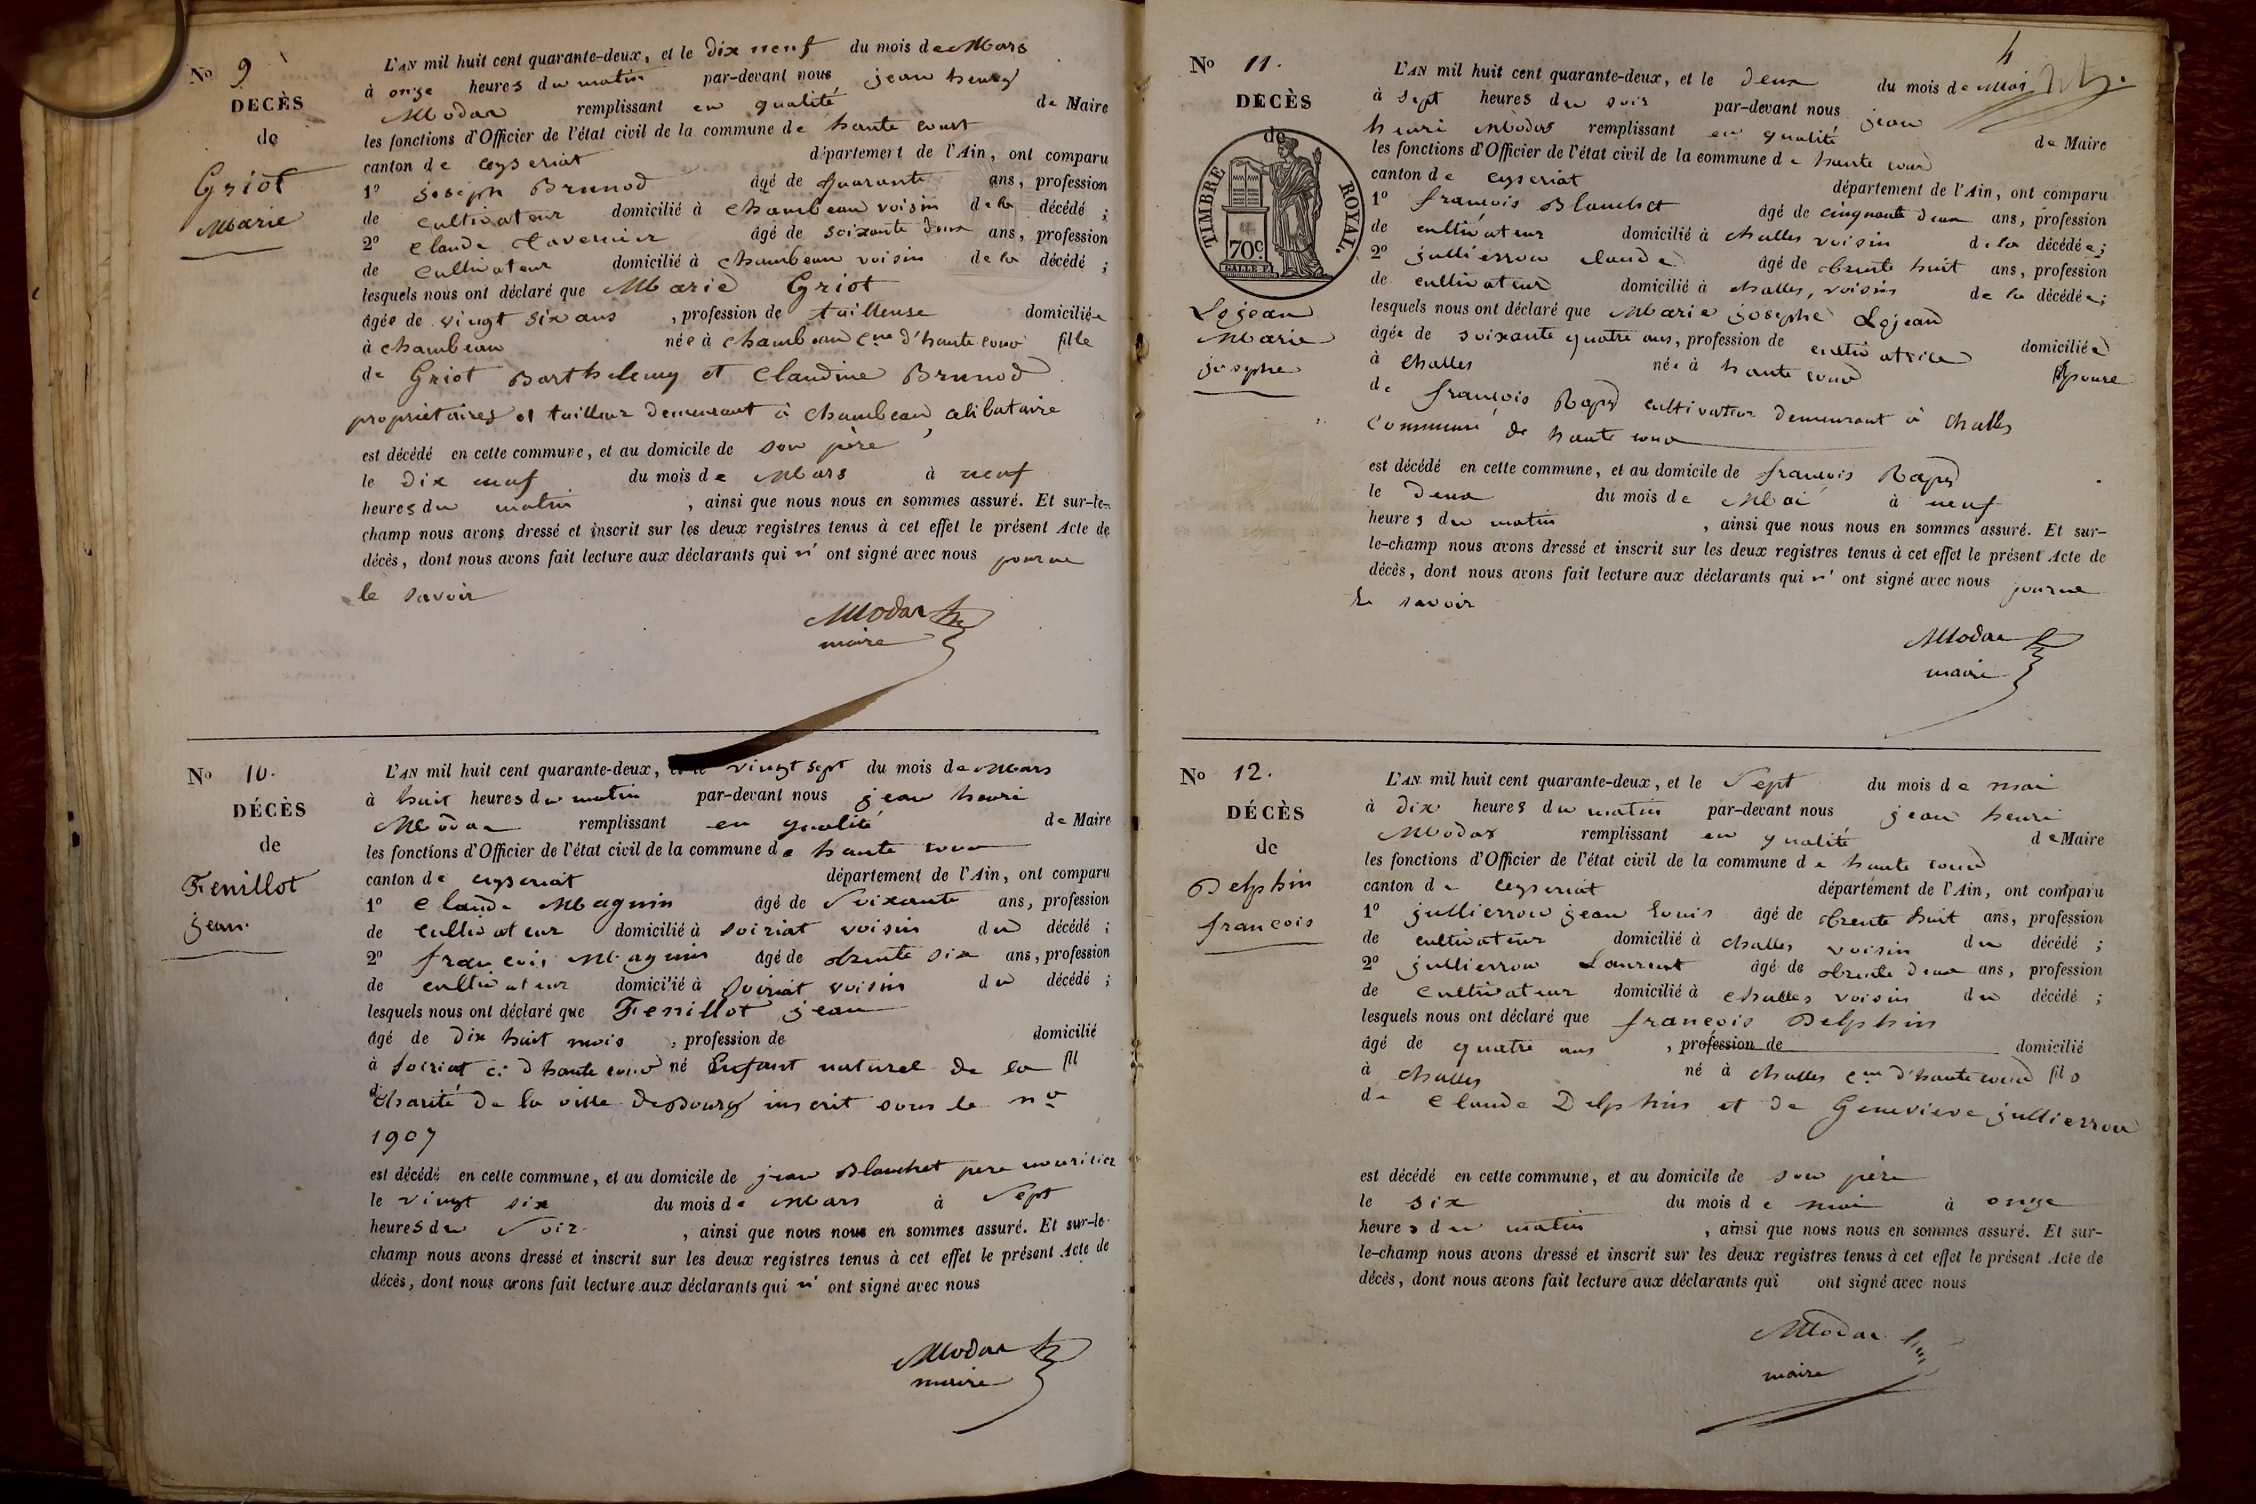 N° 9
DECÈS
de
Griot
Marie
L'AN mil huit cent quarante-deux, et le dix neuf du mois de Mars
à onze heures du matin par-devant nous jean henry
Modas remplissant en qualité de Maire
les fonctions d'Officier de l'état civil de la commune de haute court
canton de ceyseriat département de l'Ain, ont comparu
1° joseph Brunod âgé de quarante ans, profession
de cultivateur domicilié à chambeau voisin de la décédé ;
2° claude tavernier âgé de soixante deux ans, profession
de cultivateur domicilié à chambeau voisin de la décédé ;
lesquels nous ont déclaré que Marie Griot
âgée de vingt six ans , profession de tailleuse domiciliée
à chambeau née à chambeau cne d'haute cour fille
de Griot Barthelemy et Claudine Brunod
proprietaires et tailleur demeurant à chambeau, celibataire
est décédé en cette commune, et au domicile de son père
le dix neuf du mois de Mars à neuf
heures du matin , ainsi que nous nous en sommes assuré. Et sur-le-
champ nous avons dressé et inscrit sur les deux registres tenus à cet effet le présent Acte de
décès, dont nous avons fait lecture aux déclarants qui n' ont signé avec nous pour ne
le savoir
Modas
maire
N° 10.
DÉCÈS
de
Fenillot
jean.
L'AN mil huit cent quarante-deux, et le vingt sept du mois de Mars
à huit heures du matin par-devant nous jean henri
Modas remplissant en qualité de Maire
les fonctions d'Officier de l'état civil de la commune de haute cour
canton de ceyseriat département de l'Ain, ont comparu
1° claude Magnin âgé de soixante ans, profession
de cultivateur domicilié à soiriat voisin du décédé ;
2° francois Magnin âgé de trente six ans, profession
de cultivateur domicilié à soiriat voisin du décédé ;
lesquels nous ont déclaré que Fenillot jean
âgé de dix huit mois , profession de domicilié
à soiriat c. d'haute cour né Enfant naturel de la fil
de charité de la ville de Bourg inscrit sous le n°
1907
est décédé en cette commune, et au domicile de jean Blanchet pere nouricier
le vingt six du mois de Mars à sept
heures du soir , ainsi que nous nous en sommes assuré. Et sur-le-
champ nous avons dressé et inscrit sur les deux registres tenus à cet effet le présent Acte de
décès, dont nous avons fait lecture aux déclarants qui n' ont signé avec nous
Modas
maire
4
N° 11.
DÉCÈS
de
TIMBRE ROYAL.
70c.
Lejean
Marie
josephe
L'AN mil huit cent quarante-deux, et le deux du mois de Mai
à sept heures du soir par-devant nous jean
henri Modas remplissant en qualité de Maire
les fonctions d'Officier de l'état civil de la commune de haute cour
canton de ceyseriat département de l'Ain, ont comparu
1° francois Blanchet âgé de cinquante deux ans, profession
de cultivateur domicilié à challes voisin de la décédée ;
2° jullierrou claude âgé de trente huit ans, profession
de cultivateur domicilié à challes, voisin de la décédée ;
lesquels nous ont déclaré que Marie josephe Lejean
âgée de soixante quatre ans, profession de cultivatrice domiciliée
à challes née à haute cour Epouse
de francois Rapy cultivateur demeurant à challes
commune de haute cour
est décédé en cette commune, et au domicile de francois Rapy
le deux du mois de Mai à neuf
heures du matin , ainsi que nous nous en sommes assuré. Et sur-
le-champ nous avons dressé et inscrit sur les deux registres tenus à cet effet le présent Acte de
décès, dont nous avons fait lecture aux déclarants qui n' ont signé avec nous pour ne
le savoir
Modas
maire
N° 12.
DÉCÈS
de
Delphin
francois
L'AN mil huit cent quarante-deux, et le sept du mois de mai
à dix heures du matin par-devant nous jean henri
Modas remplissant en qualité de Maire
les fonctions d'Officier de l'état civil de la commune de haute cour
canton de ceyseriat département de l'Ain, ont comparu
1° jullierrou jean louis âgé de trente huit ans, profession
de cultivateur domicilié à challes voisin du décédé ;
2° jullierrou Laurent âgé de trente deux ans, profession
de cultivateur domicilié à challes voisin du décédé ;
lesquels nous ont déclaré que francois Delphin
âgé de quatre ans , profession de domicilié
à challes né à challes cne d'haute cour fils
de claude Delphin et de Genevieve jullierrou
est décédé en cette commune, et au domicile de son père
le six du mois de mai à onze
heures du matin , ainsi que nous nous en sommes assuré. Et sur-
le-champ nous avons dressé et inscrit sur les deux registres tenus à cet effet le présent Acte de
décès, dont nous avons fait lecture aux déclarants qui ont signé avec nous
Modas
maire